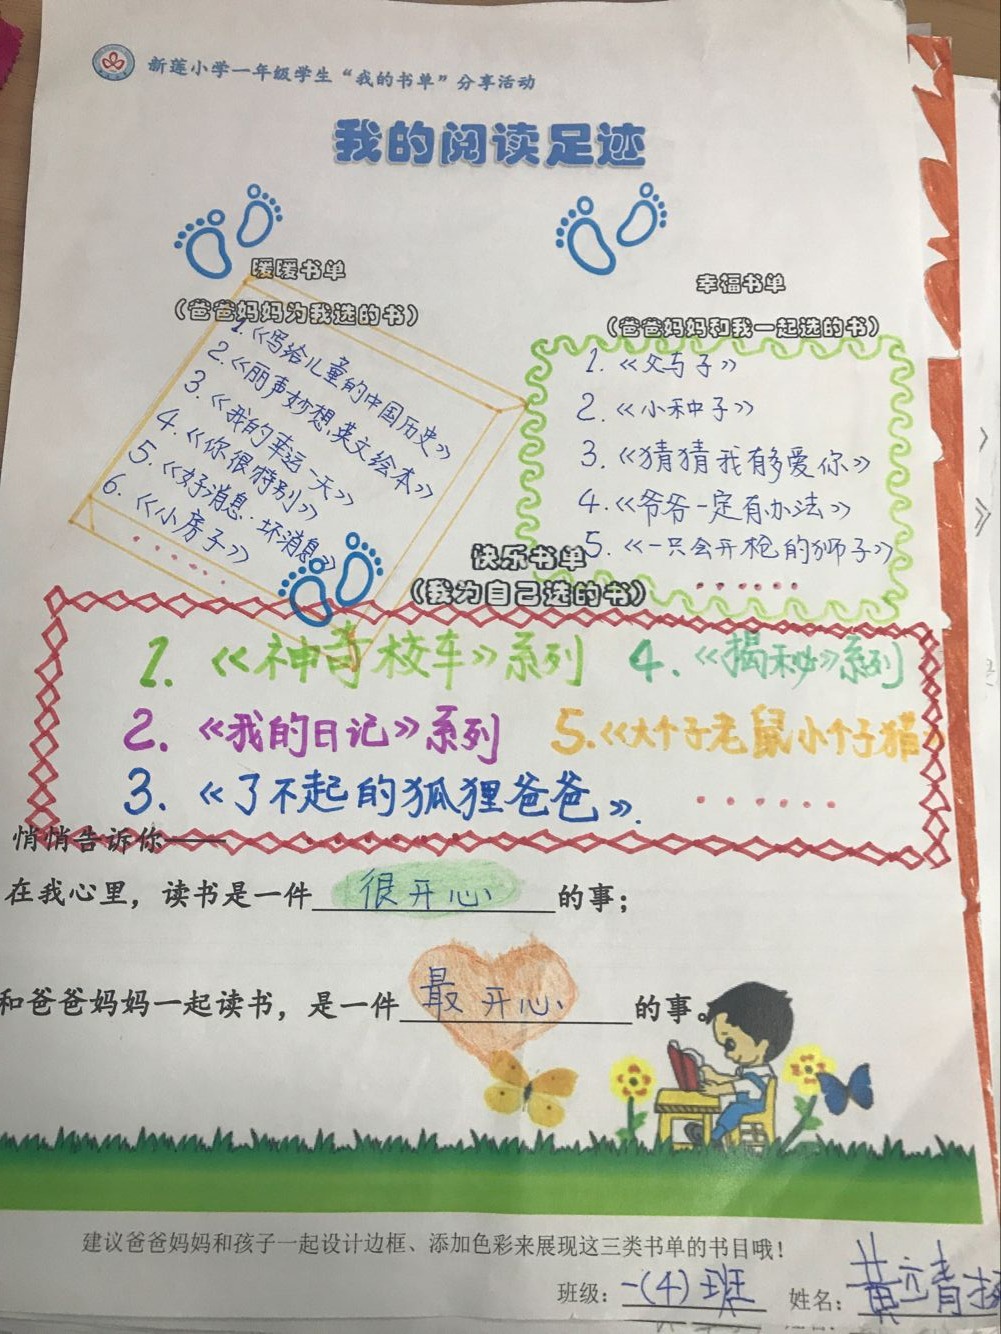 新莲小学一年级学生“我的书单”分享活动
我的阅读足迹
暖暖书单
（爸爸妈妈为我选的书）
1.《写给儿童的中国历史》
2.《丽声妙想英文绘本》
3.《我的幸运一天》
4.《你很特别》
5.《好消息·坏消息》
6.《小房子》
......
幸福书单
（爸爸妈妈和我一起选的书）
1.《父与子》
2.《小种子》
3.《猜猜我有多爱你》
4.《爷爷一定有办法》
5.《一只会开枪的狮子》
......
快乐书单
（我为自己选的书）
1.《神奇校车》系列
2.《我的日记》系列
3.《了不起的狐狸爸爸》.
4.《揭秘》系列
5.《大个子老鼠小个子猫》
......
悄悄告诉你——
在我心里，读书是一件很开心的事；
和爸爸妈妈一起读书，是一件最开心的事。
建议爸爸妈妈和孩子一起设计边框、添加色彩来展现这三类书单的书目哦！
班级：一（4）班 姓名：黄立青